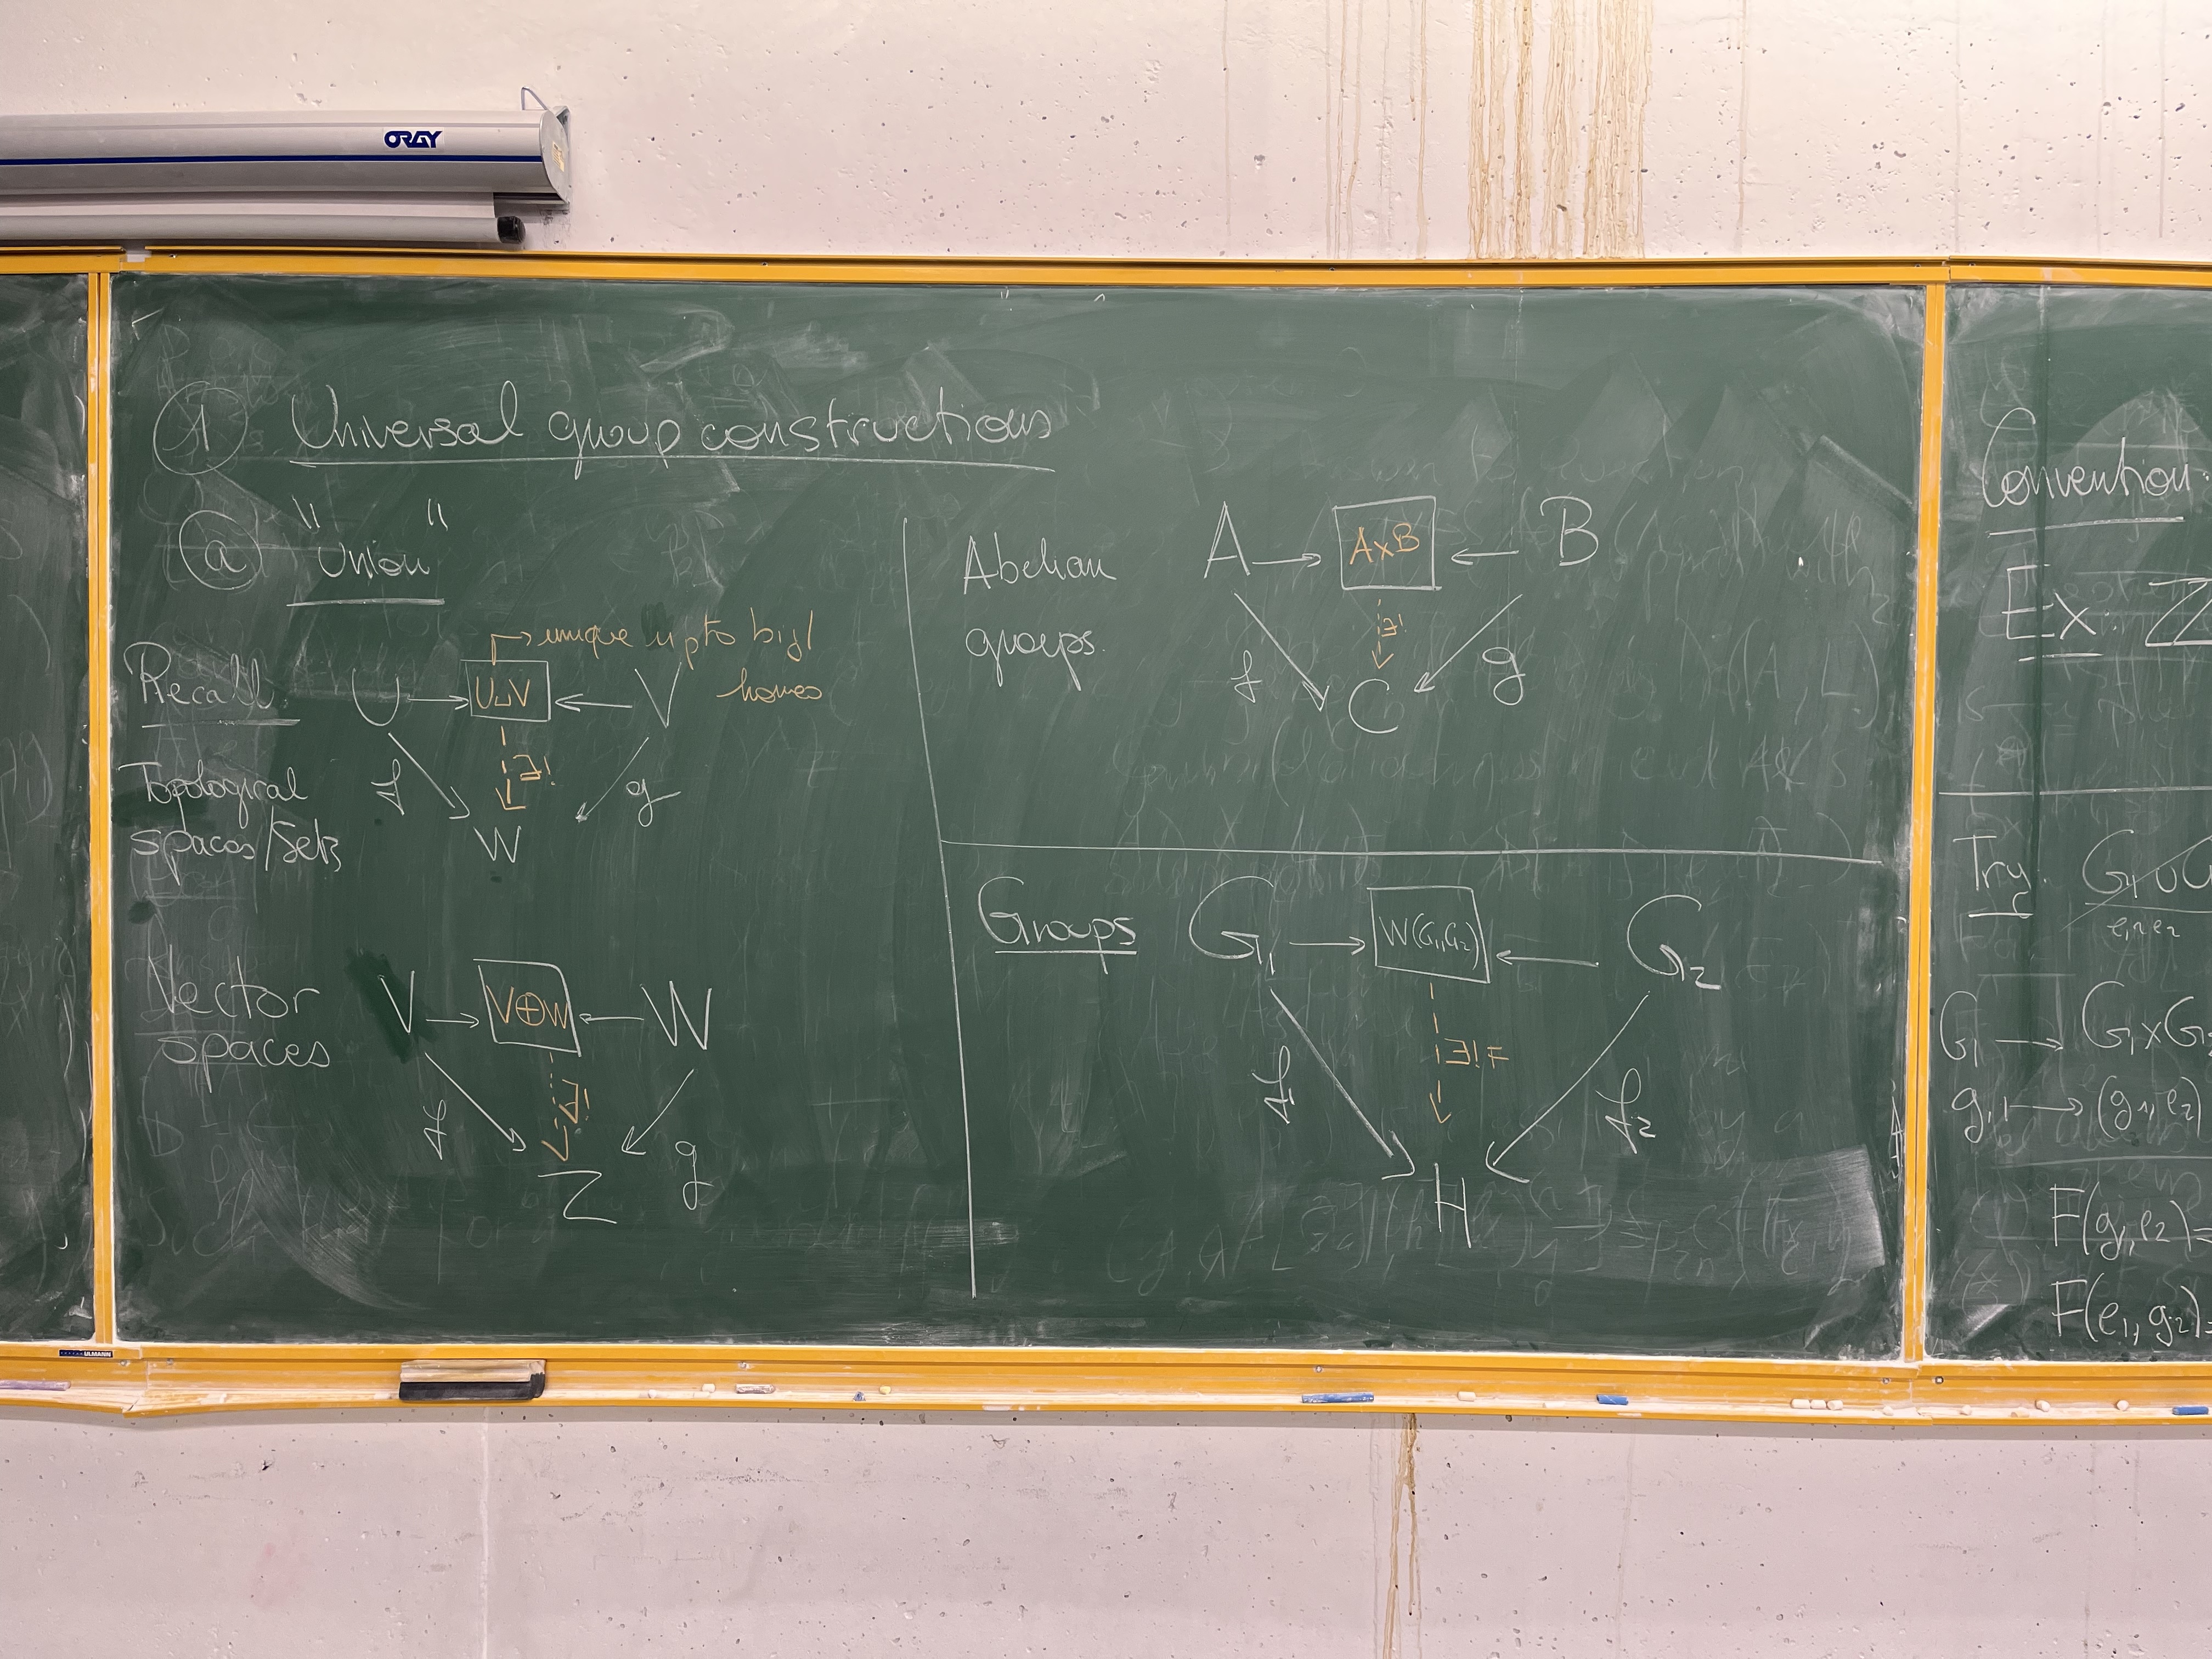 ORAY
① Universal group constructions
ⓐ "Union"
→ unique up to bij/
homeo
Recall. U → U⊔V ← V
Topological
spaces/Sets
f ∃! g
W
Vector
spaces
V → V⊕W ← W
f ∃! g
Z
Abelian
groups.
A → A×B ← B
f ∃! g
C
Groups G₁ → W(G₁,G₂) ← G₂
f₁ ∃!F f₂
H
ULMANN
Convention.
Ex: Z
Try.
G₁ → G₁×G₂
g₁ ↦ (g₁,e₂)
F(g₁,e₂)=
F(e₁,g₂)=